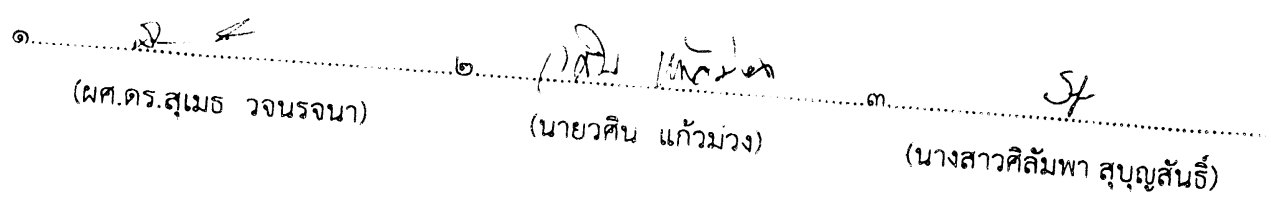 ๑.....................๒. วศิน แก้วม่วง .....................๓.....................
(ผศ.ดร.สุเมธ วจนรจนา) (นายวศิน แก้วม่วง) (นางสาวศิลัมพา สุบุญสันธิ์)